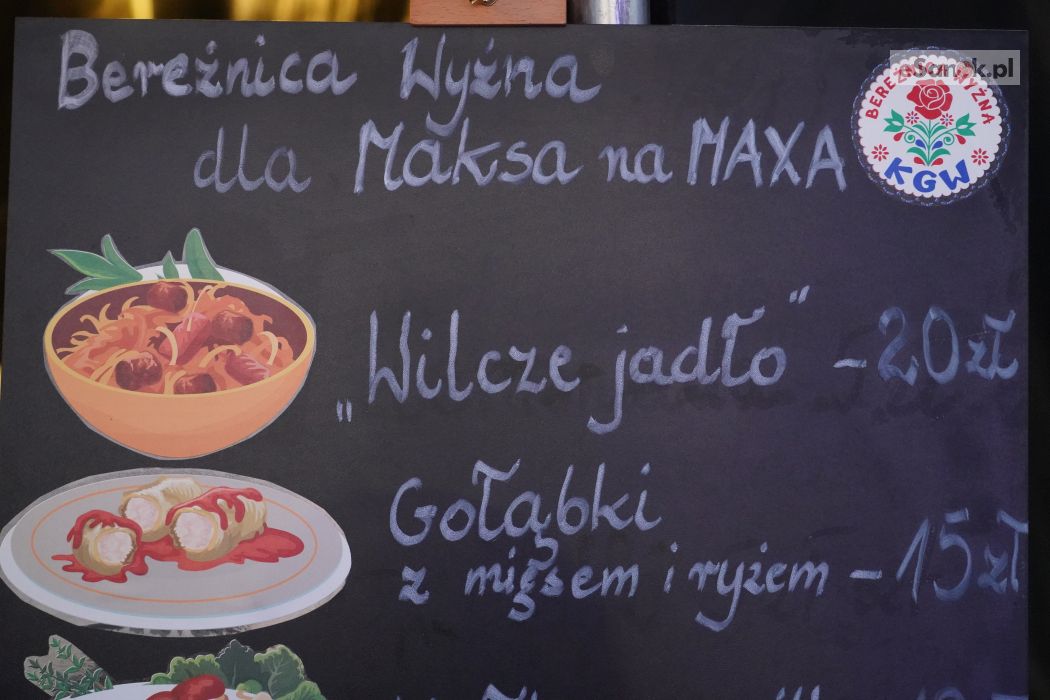 Bereźnica Wyżna
dla Maksa na MAXA
eSanok.pl
BEREŹNICA WYŻNA
KGW
„Wilcze jadło" - 20 zł
Gołąbki
z mięsem i ryżem - 15 zł